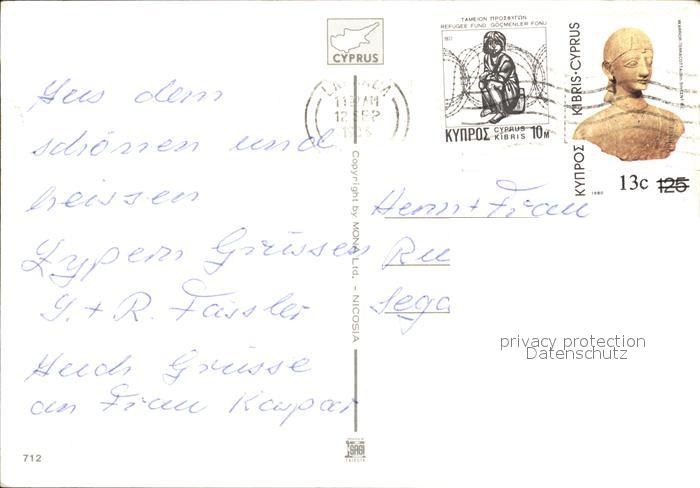 Aus dem
schönen und
heissen
Zypern Grüssen
G. + R. Fässler
Auch Grüsse
an Frau Kaspar
712
Copyright by MONA Ltd. - NICOSIA
CYPRUS
LARNACA
11 AM
12 SEP
ΤΑΜΕΙΟΝ ΠΡΟΣΦΥΓΩΝ
REFUGEE FUND GÖÇMENLER FONU
1977
ΚΥΠΡΟΣ CYPRUS KIBRIS 10M
ΚΥΠΡΟΣ KIBRIS-CYPRUS
1980
13c 125
Herrn + Frau
Ru
Sega
privacy protection
Datenschutz
SAGI
TRIESTE